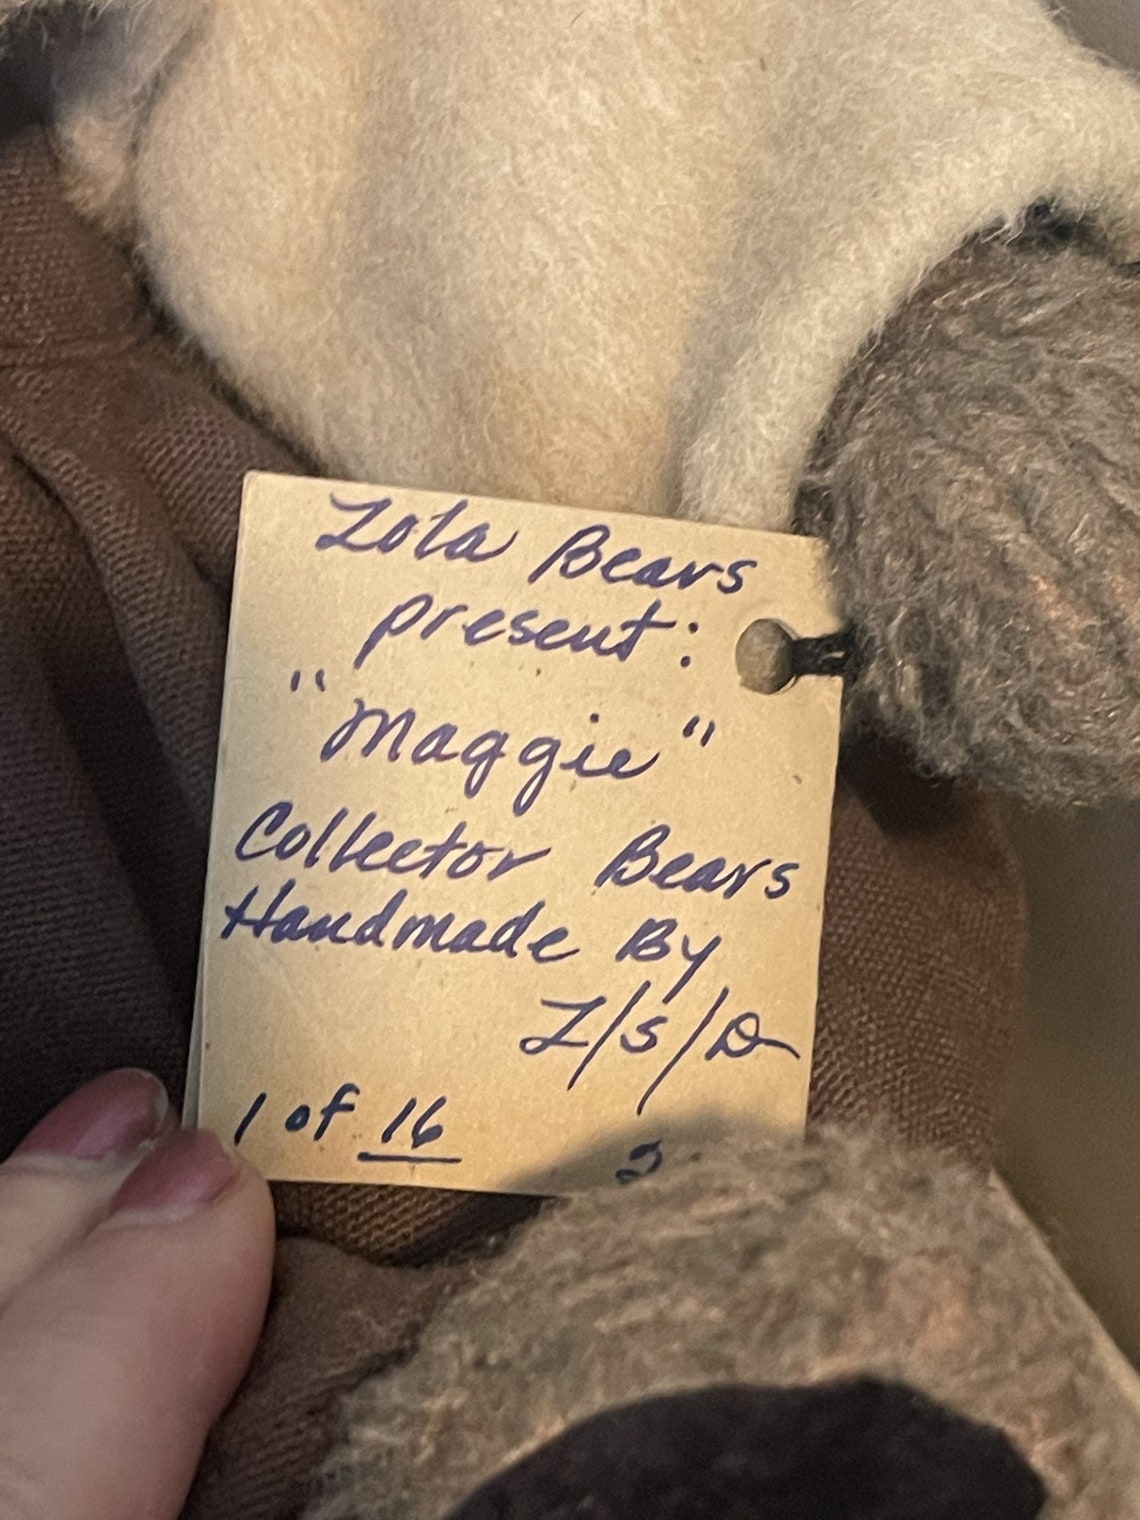 Lola Bears
present:
"Maggie"
Collector Bears
Handmade By
L/S/D
1 of 16